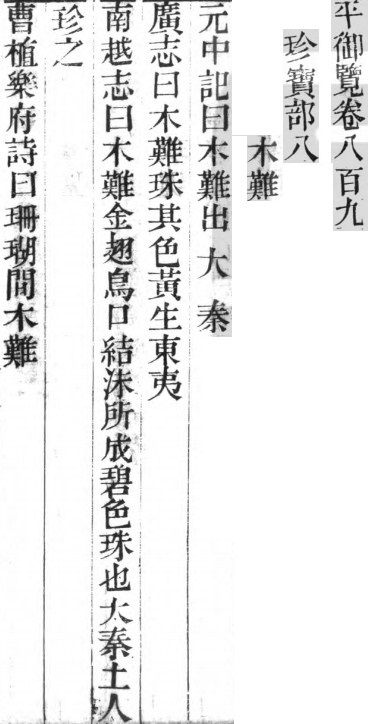 平御覽卷八百九
珍寶部八
木難
元中記曰木難出大秦
廣志曰木難珠其色黃生東夷
南越志曰木難金翅鳥口結沫所成碧色珠也大秦土人
珍之
曹植樂府詩曰珊瑚間木難